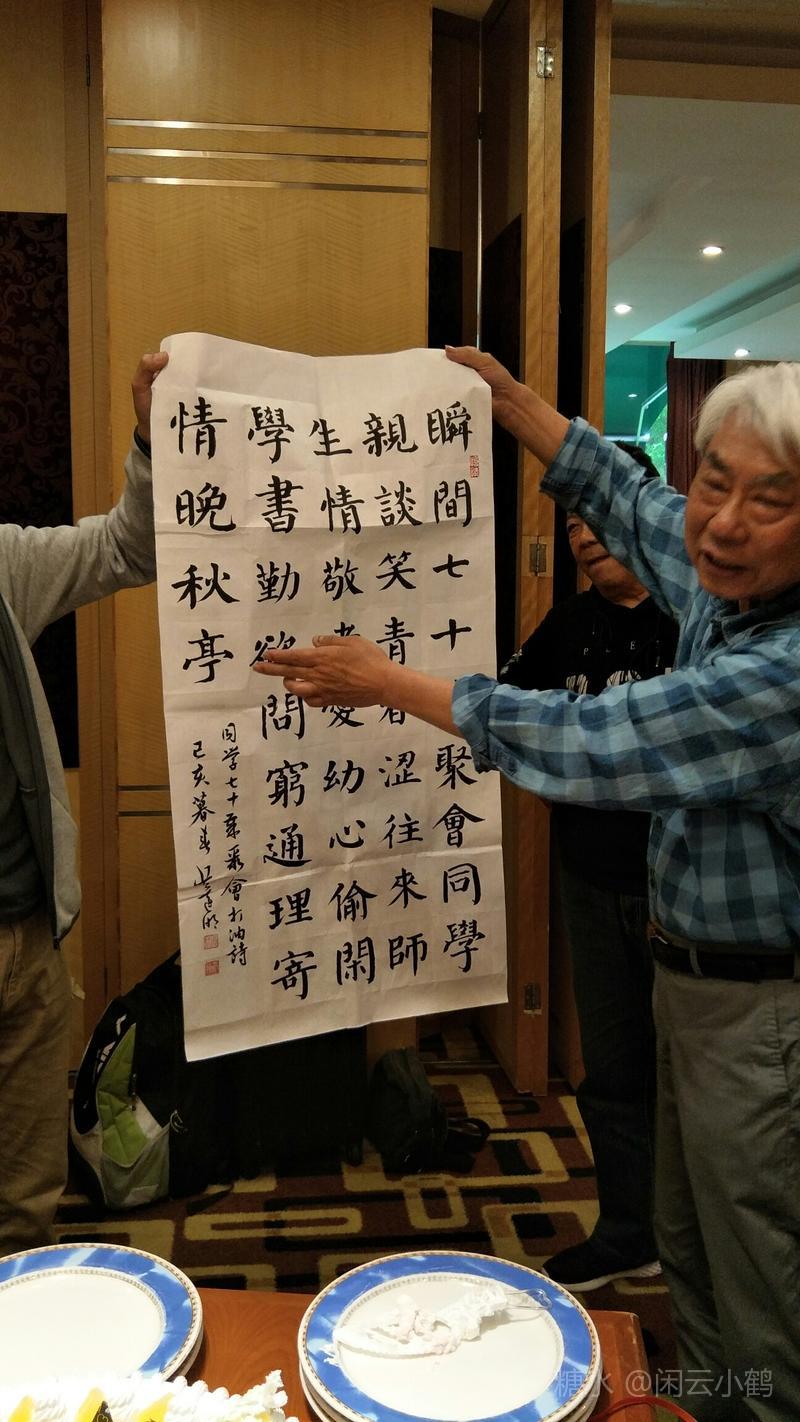 瞬間七十聚會同學
親談笑青澀往來師
生情敬老愛幼心偷閑
學書勤欲問窮通理寄
情晚秋亭
同学七十歲聚會打油詩
己亥暮春
糖水 @闲云小鹤